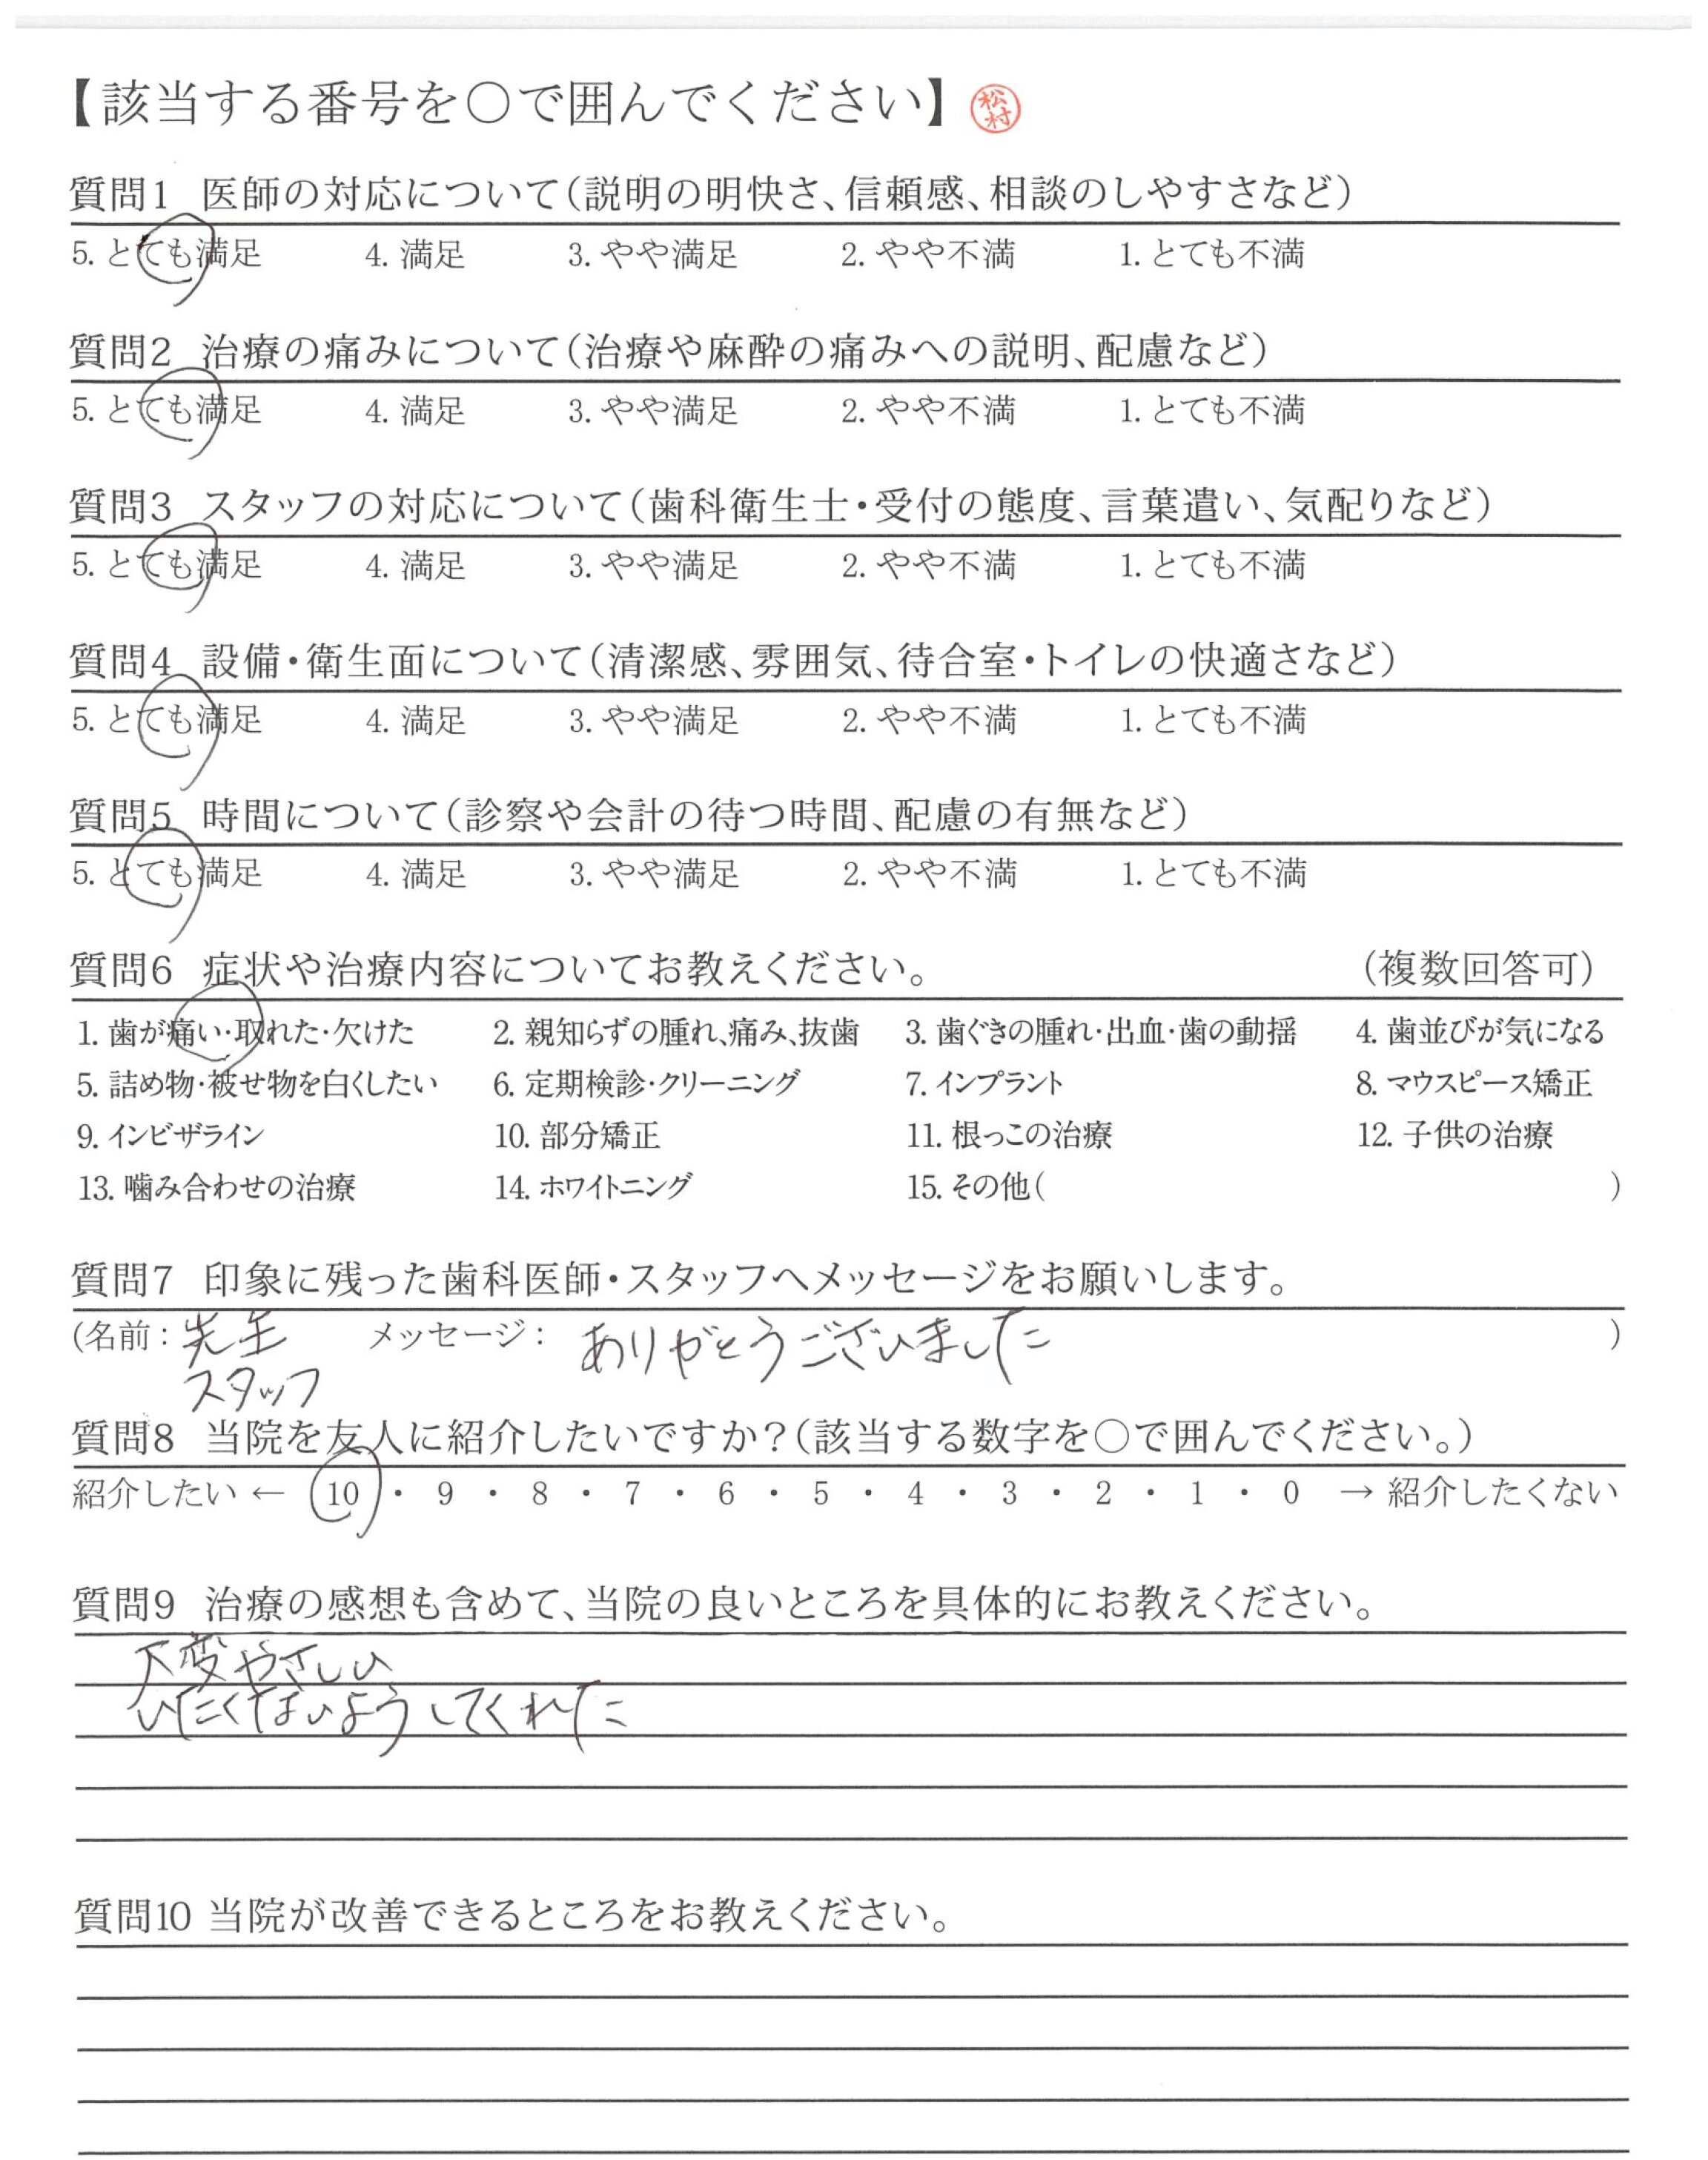 【該当する番号を○で囲んでください】 松村
質問1 医師の対応について(説明の明快さ、信頼感、相談のしやすさなど)
5. とても満足 4. 満足 3. やや満足 2. やや不満 1. とても不満
質問2 治療の痛みについて(治療や麻酔の痛みへの説明、配慮など)
5. とても満足 4. 満足 3. やや満足 2. やや不満 1. とても不満
質問3 スタッフの対応について(歯科衛生士・受付の態度、言葉遣い、気配りなど)
5. とても満足 4. 満足 3. やや満足 2. やや不満 1. とても不満
質問4 設備・衛生面について(清潔感、雰囲気、待合室・トイレの快適さなど)
5. とても満足 4. 満足 3. やや満足 2. やや不満 1. とても不満
質問5 時間について(診察や会計の待つ時間、配慮の有無など)
5. とても満足 4. 満足 3. やや満足 2. やや不満 1. とても不満
質問6 症状や治療内容についてお教えください。 (複数回答可)
1. 歯が痛い・取れた・欠けた 2. 親知らずの腫れ、痛み、抜歯 3. 歯ぐきの腫れ・出血・歯の動揺 4. 歯並びが気になる
5. 詰め物・被せ物を白くしたい 6. 定期検診・クリーニング 7. インプラント 8. マウスピース矯正
9. インビザライン 10. 部分矯正 11. 根っこの治療 12. 子供の治療
13. 噛み合わせの治療 14. ホワイトニング 15. その他( )
質問7 印象に残った歯科医師・スタッフへメッセージをお願いします。
(名前: 先生 メッセージ: ありがとうございました )
スタッフ
質問8 当院を友人に紹介したいですか?(該当する数字を○で囲んでください。)
紹介したい ← 10 ・ 9 ・ 8 ・ 7 ・ 6 ・ 5 ・ 4 ・ 3 ・ 2 ・ 1 ・ 0 → 紹介したくない
質問9 治療の感想も含めて、当院の良いところを具体的にお教えください。
大変やさしい
いたくないようしてくれた
質問10 当院が改善できるところをお教えください。